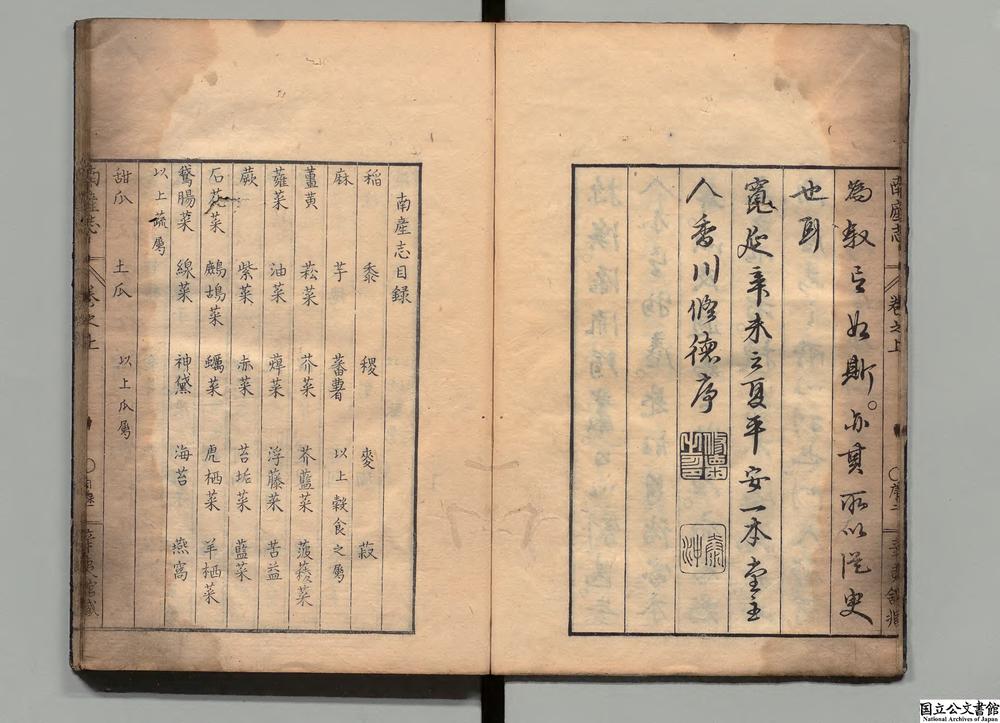 南産志 卷之上 ○序二
為叙如斯。亦冀所以從史
也耳
寛延辛未之夏平安一本堂主
人香川脩徳序
南産志目録
稲 黍 稷 麥 菽
麻 芋 蕃薯 以上穀食之属
薑黄 菘菜 芥菜 芥藍菜 菠薐菜
蕹菜 油菜 菜 浮藤菜 苦益
蕨 紫菜 赤菜 苔垢菜 藍菜
石花菜 鷓鴣菜 蠣菜 虎栖菜 羊栖菜
鵞腸菜 線菜 神黛 海苔 燕窩
以上蔬属
甜瓜 土瓜 以上瓜属
南産志 卷之上
国立公文書館
National Archives of Japan